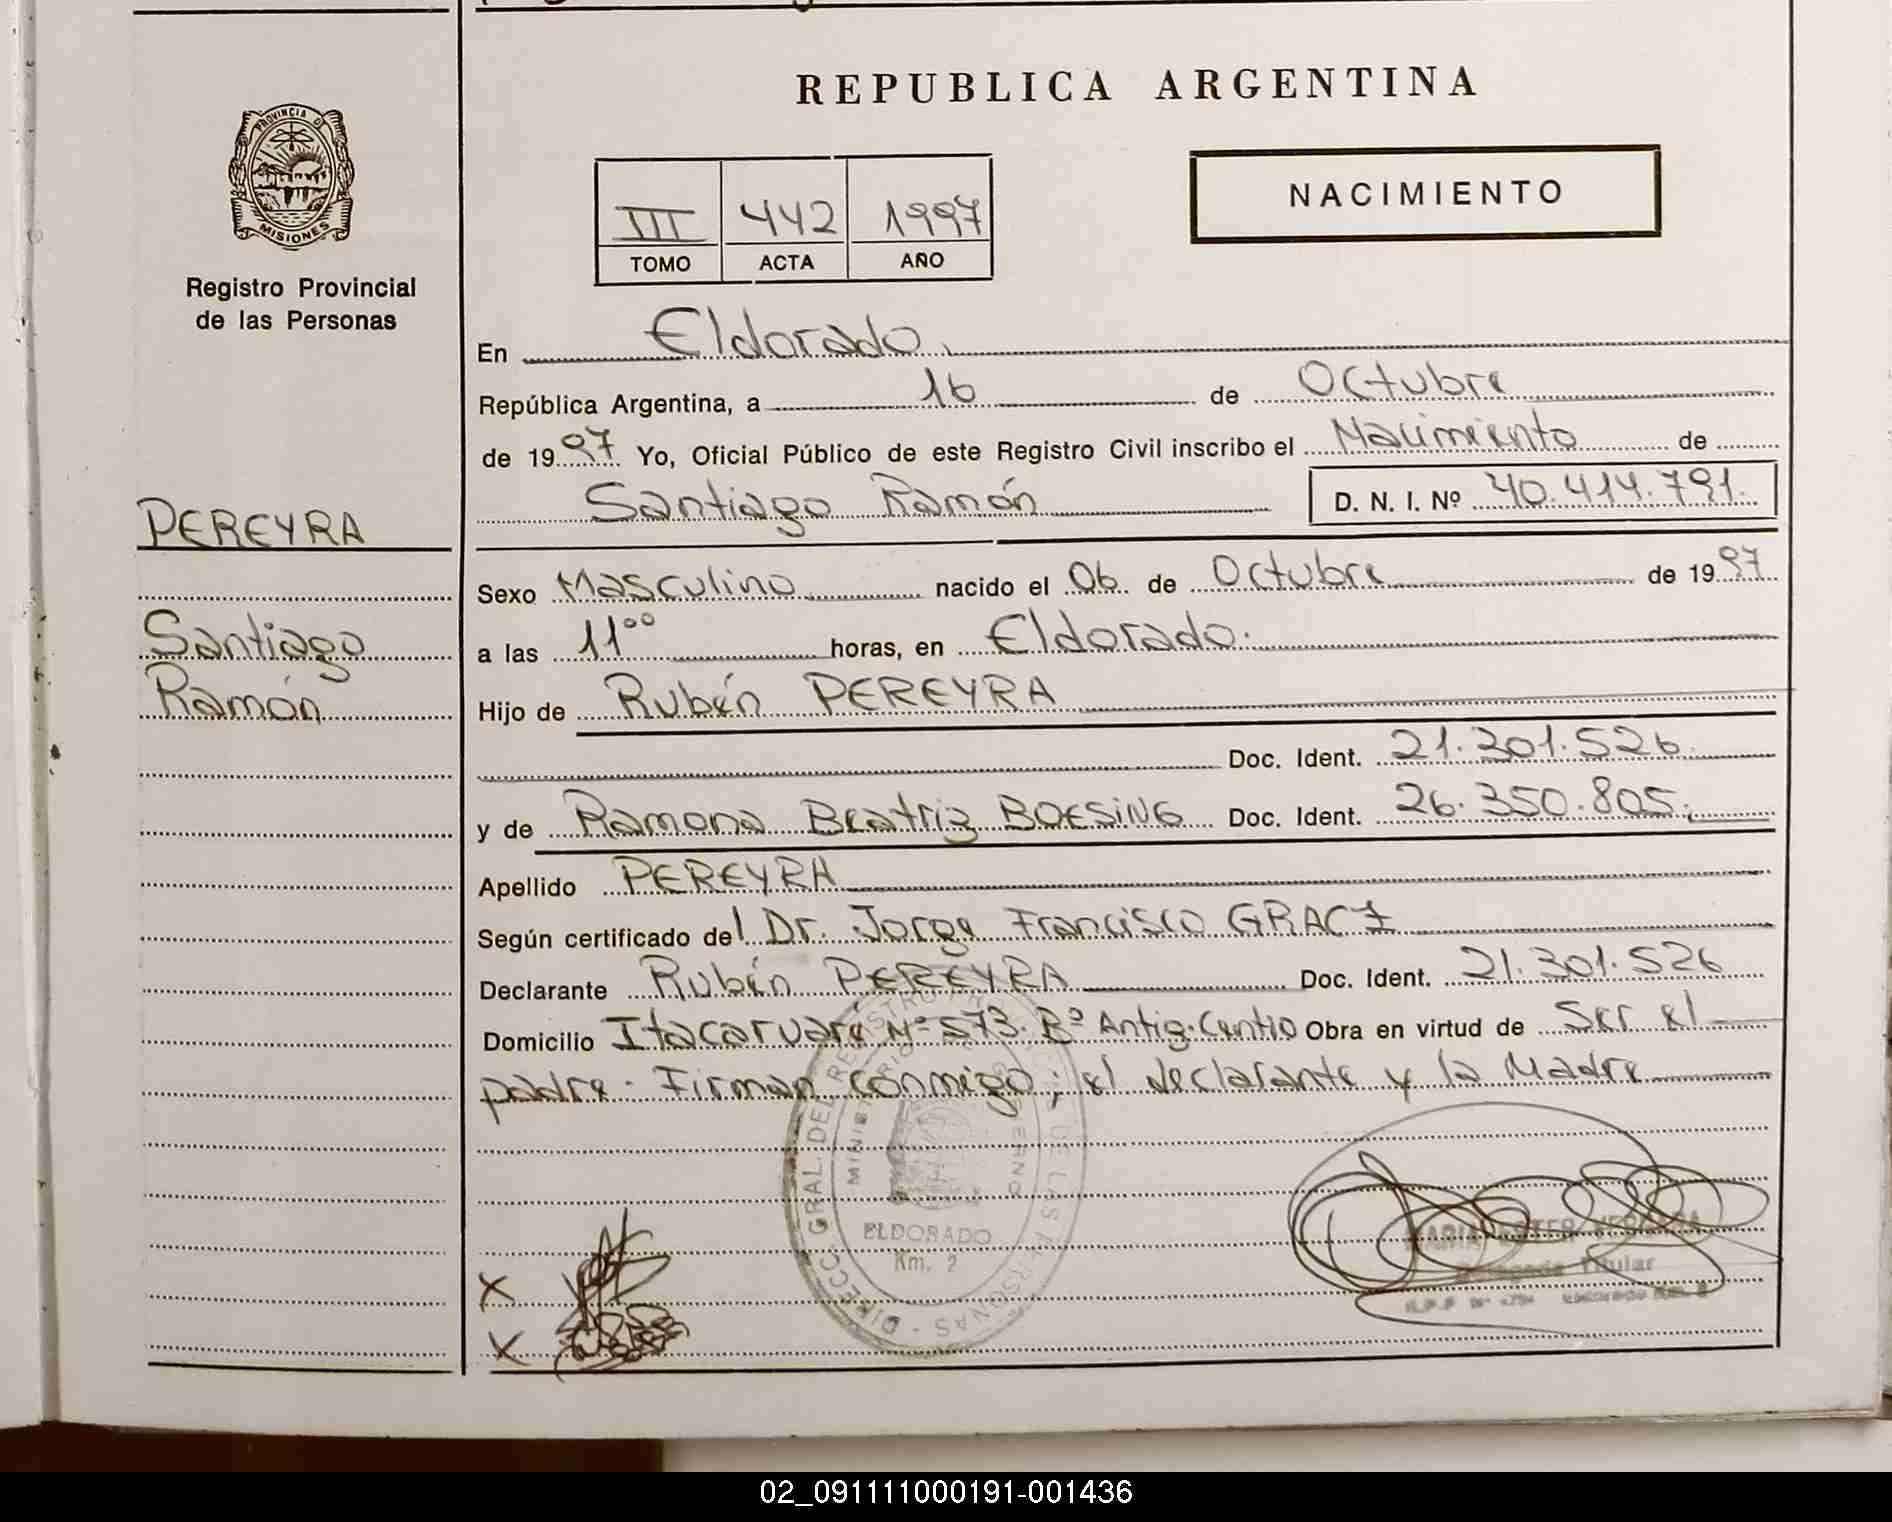 REPUBLICA ARGENTINA
PROVINCIA DE
MISIONES
Registro Provincial
de las Personas
NACIMIENTO
III 442 1997
TOMO ACTA AÑO
En Eldorado.
República Argentina, a 16 de Octubre
de 1997 Yo, Oficial Público de este Registro Civil inscribo el Nacimiento de
Santiago Ramón D. N. I. Nº 40.414.791.
PEREYRA
Santiago
Ramón
Sexo Masculino nacido el 06 de Octubre de 1997
a las 11⁰⁰ horas, en Eldorado.
Hijo de Rubén PEREYRA
Doc. Ident. 21.301.526.
y de Ramona Beatriz BOESING Doc. Ident. 26.350.805.
Apellido PEREYRA
Según certificado del Dr. Jorge Francisco
Declarante Rubén PEREYRA Doc. Ident. 21.301.526
Domicilio Itacaruaré Nº 573. Bº Antig. Centro Obra en virtud de Ser el
padre. Firman conmigo; el declarante y la Madre
DIRECC. GRAL. DEL REGISTRO DE LAS PERSONAS
ELDORADO
Km. 2
X
X
MARIA ESTER
Delegada Titular
02_091111000191-001436